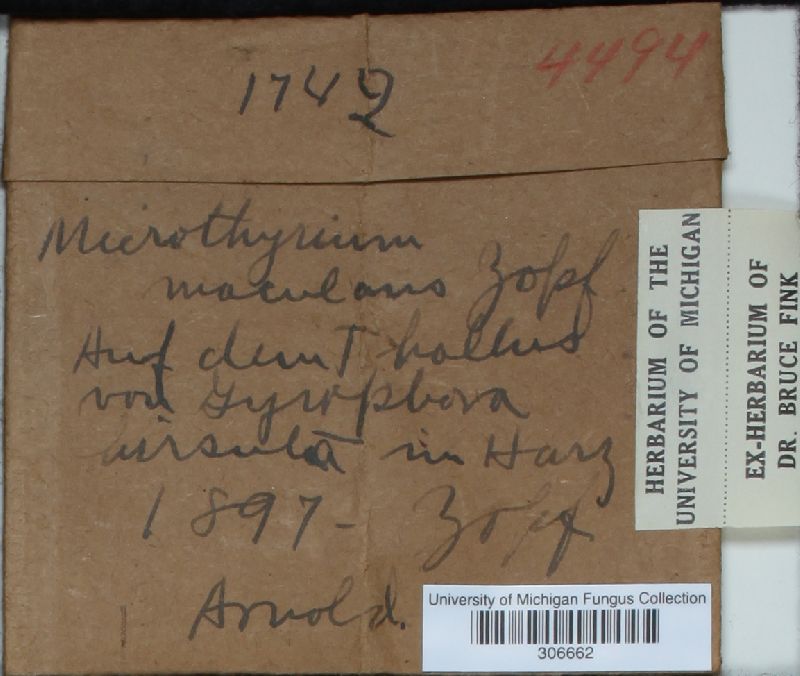 4494
1742
Microthyrium
maculans Zopf
Auf dem Thallus
von Gyrophora
hirsuta in Harz
1897- Zopf
Arnold.
HERBARIUM OF THE
UNIVERSITY OF MICHIGAN
EX-HERBARIUM OF
DR. BRUCE FINK
University of Michigan Fungus Collection
306662